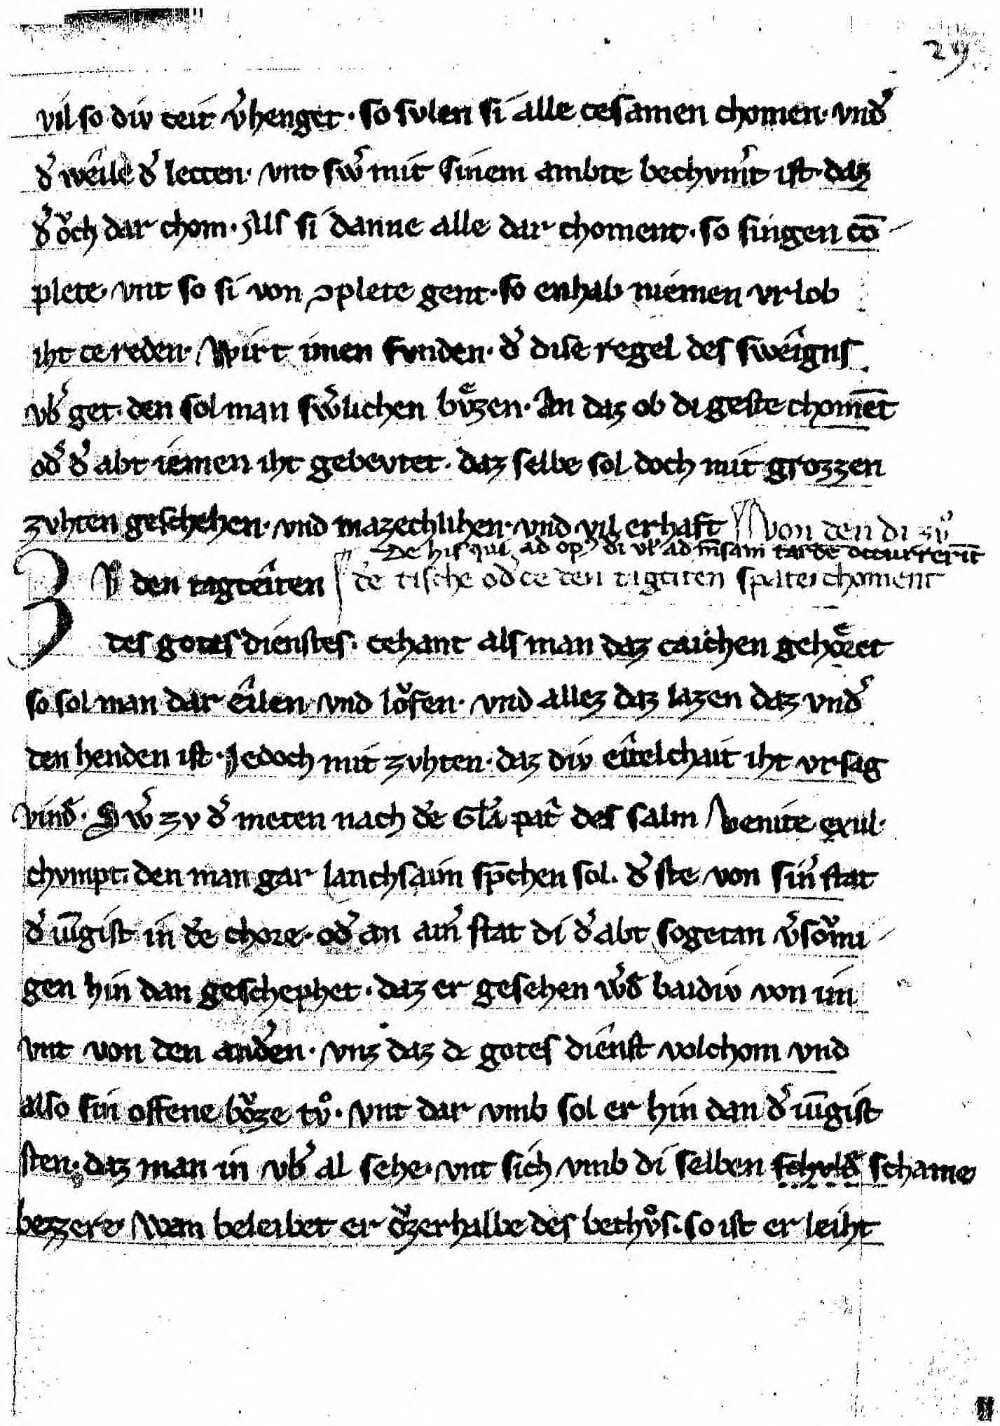 29
vil so div ceit v̾henget · so svlen si alle cesamen chomen · vnd̾
d̾ wêile d̾ letten · vnt sw̾ mit sinem ambte bechvm̾t ist · daz
d̾ ǒch dar chom · Als si danne alle dar choment · so singen cō
plete vnt so si von ↄplete gent · so enhab niemen vrlob
iht ce reden · Wirt imen fvnden · d̾ dise regel des swêigns
vb̾ get · den sol man sw̾lichen bv̊zen · An daz ob di geste chomēt
od̾ d̾ abt iemen iht gebevtet · daz selbe sol doch mit grozzen
zvhten geschehen · vnd mazechlihen · vnd vil erhaft von den di zv̊
De his qui ad op̾ di vl̾ ad m̄sam tarde occurrerīt
ZV den tagcêiten de tische od̾ ce den tagciten spate choment
des gotes dienstes · cehant als man daz caichen gehôret
so sol man dar êilen vnd lǒfen · vnd allez daz lazen daz vnd̾
den henden ist · Jedoch mit zvhten · daz div eîtelchait iht vrsag
vind̾ · Sw̾ zv d̾ meten nach de Gl̄a pat̾ des salm Venite exul·
chvmpt · den man gar lanchsaim sp̄chen sol · d̾ ste von sin̾ stat
d̾ iv̄gist in de chore · od̾ an ain̾ stat di d̾ abt sogetan v̾sǒmi
gen hin dan geschephet · daz er gesehen w̾d̾ baidiv von im
vnt von den and̾en · vnz daz dc gotes diênst volchom vnd
also sin offene bv̊ze tv̊ · vnt dar vmb sol er hin dan d̾ iv̄gist
sten · daz man in vb̾ al sehe · vnt sich vmb di selben schvld̾ schame
bezzere · Wan beleibet er v̊zerhalbe des bethv̊s · so ist er leiht